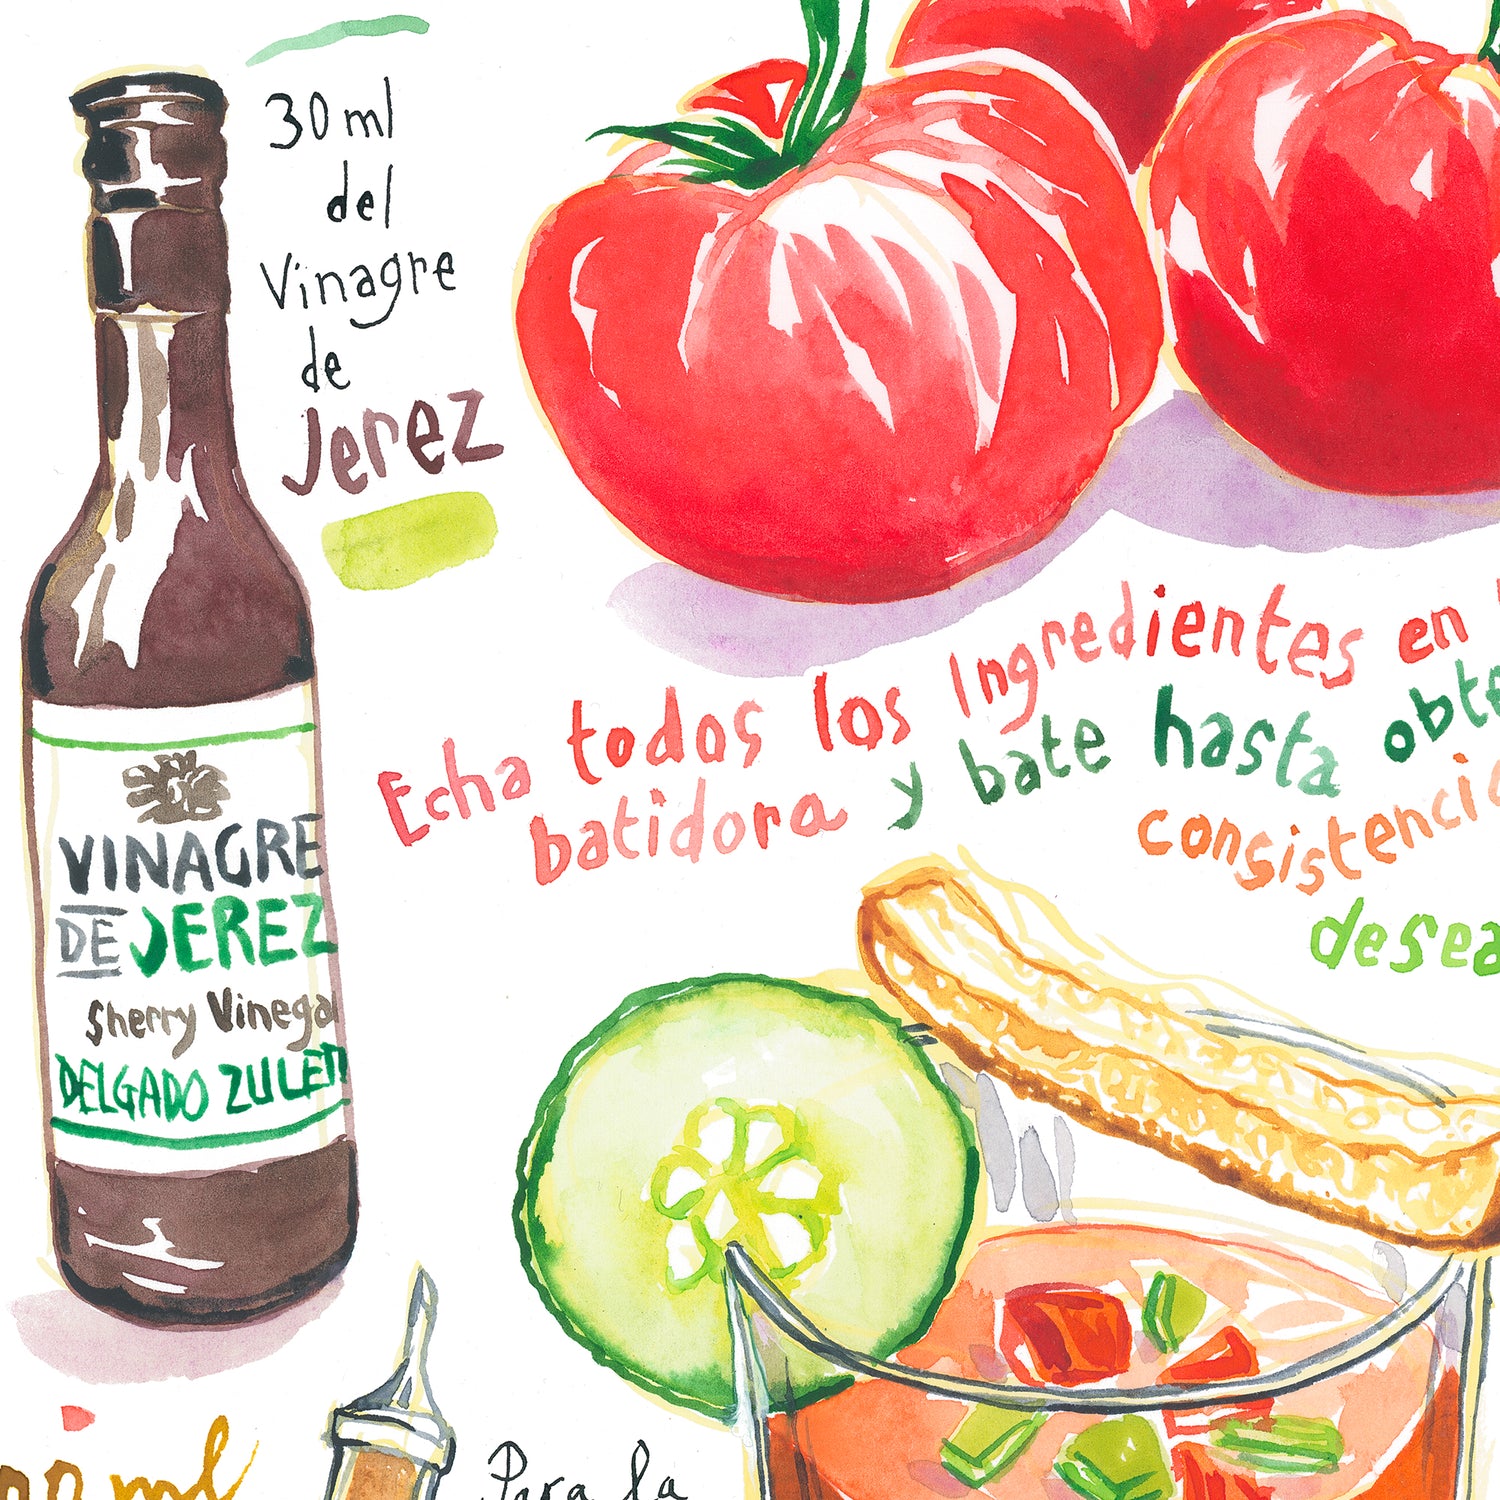 30 ml
del
Vinagre
de
Jerez
Echa todos los Ingredientes en
batidora y bate hasta obte
consistenci
desea
VINAGRE
DE JEREZ
Sherry Vinegar
DELGADO ZULET
ml
Para la